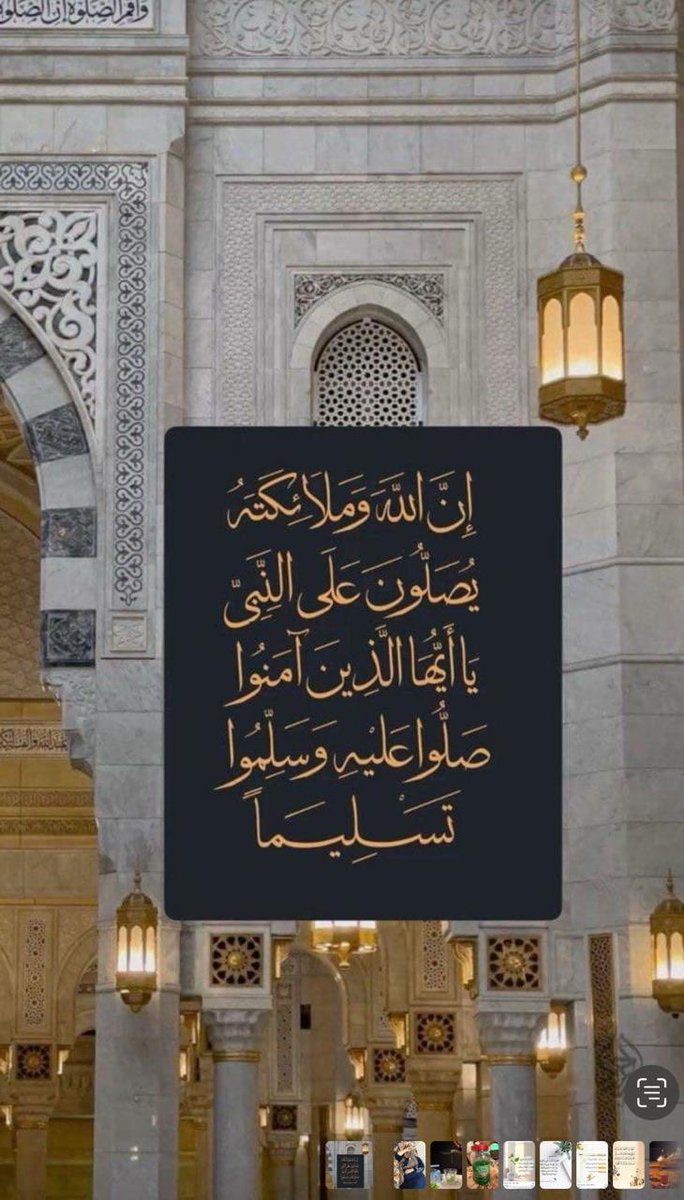 وأقم الصلوة إن الصلوة
إِنَّ اللَّهَ وَمَلَائِكَتَهُ
يُصَلُّونَ عَلَى النَّبِيِّ
يَا أَيُّهَا الَّذِينَ آمَنُوا
صَلُّوا عَلَيْهِ وَسَلِّمُوا
تَسْلِيمَاً